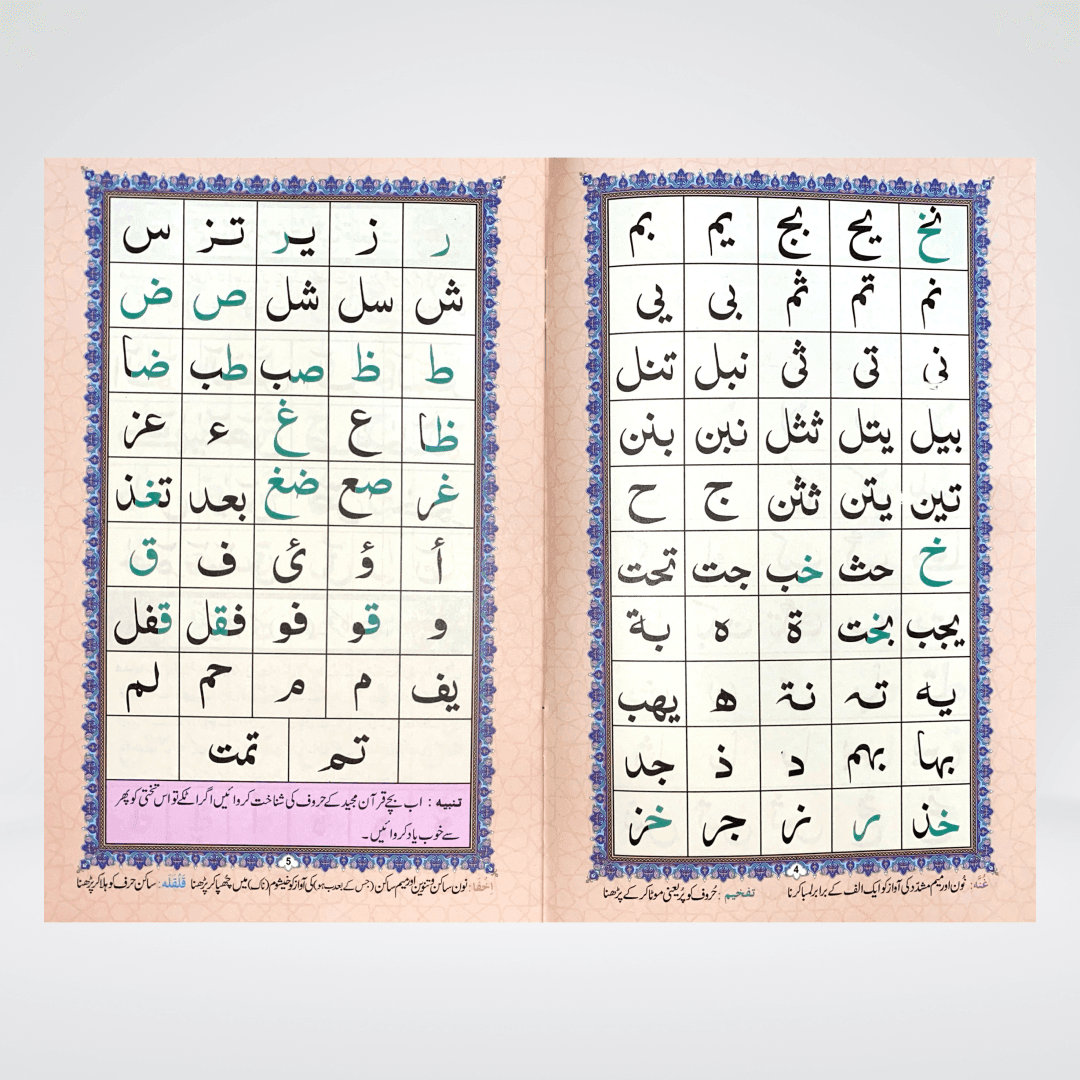 نخ یح بج یم بم
نم تم ثم بی یی
نی تی ثی نبل تنل
بیل یتل ثثل نبن بنن
تین یتن ثثن ج ح
خ حث خب جت تحت
یجب بخت ة ه بة
یه تہ نة ھ یھب
بہا بہم د ذ جد
خذ ر نز جر خز
4
غُنَّه: نُون اور میم مشدّد کی آواز کو ایک الف کے برابر لمبا کرنا
تفخیم: حُروف کو پُر یعنی موٹا کر کے پڑھنا
ر ز یر تز س
ش سل شل ص ض
ط ظ صب طب ضا
ظا ع غ ء عز
غر صع ضغ بعد تغذ
أ ؤ ئ ف ق
و قو فو فقل قفل
یف م م حم لم
تم تمت
تنبیه: اب بچے قرآن مجید کے حروف کی شناخت کروائیں اگر اٹکے تو اس تختی کو پھر
سے خوب یاد کروائیں۔
5
اخفا: نُون ساکن و تنوین اور میم ساکن (جس کے بعد ب ہو) کی آواز کو خیشوم (ناک) میں چھپا کر پڑھنا
قلقله: ساکن حرف کو ہلا کر پڑھنا